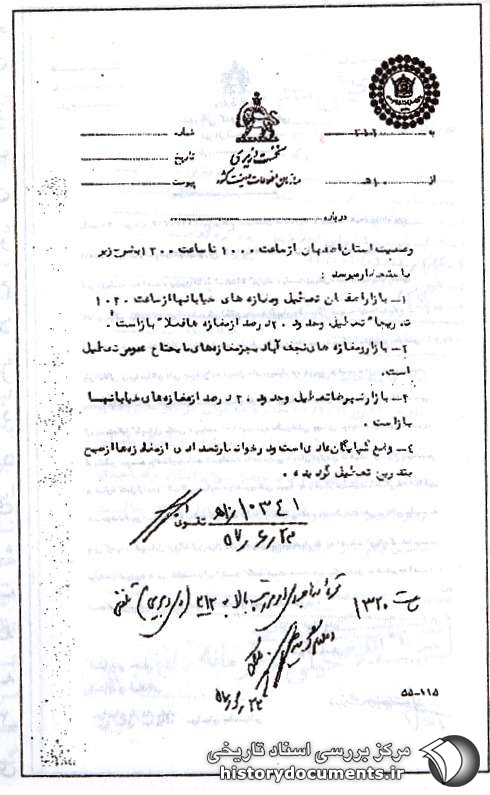 به ۳۱۲
شماره
نخست وزیری
تاریخ
از ۱۰ ه‍
سازمان اطلاعات و امنیت کشور
پیوست
درباره
وضعیت استان اصفهان از ساعت ۱۰۰۰ تا ساعت ۱۳۰۰ بشرح زیر
باستحضار میرسد :
۱ــ بازار اصفهان تعطیل و مغازه های خیابانها از ساعت ۱۰۳۰
تدریجا" تعطیل و حدود ۲۰ درصد از مغازه ها فعلا" بازاست .
۲ــ بازار و مغازه های نجف آباد بجز مغازه های مایحتاج عمومی تعطیل
است.
۳ــ بازار شهرضا تعطیل و حدود ۳۰ درصد از مغازه های خیابانها
بازاست .
٤ــ وضع شهرهای عادی است و در خوانسار تعدادی از مغازه ها از صبح
بتدریج تعطیل گردیده .
۱۰۳٤۱/ ه‍۱۰
۵۷/۶/۲۳
ساعت ۱۳۲۰
بالا به ۳۱۲ تلفنی
۵۷/۶/۲۳
۵۵-۱۱۵
مرکز بررسی اسناد تاریخی
historydocuments.ir